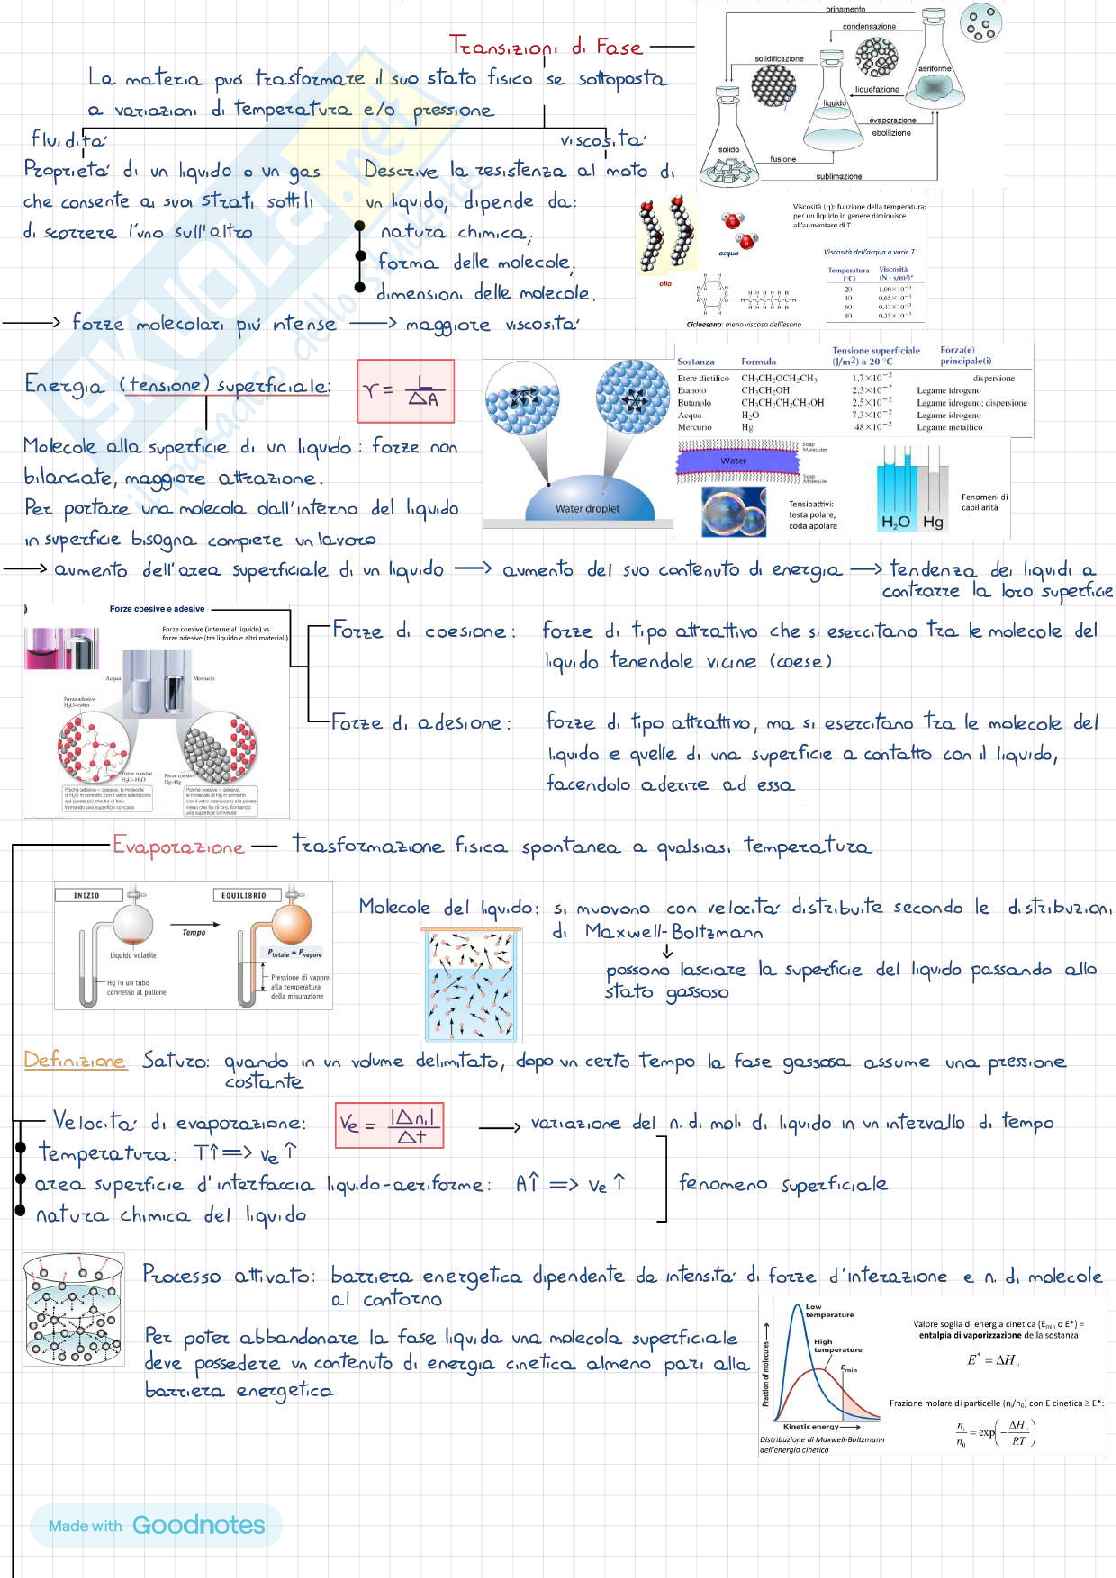 Transizioni di Fase
La materia può trasformare il suo stato fisico se sottoposta
a variazioni di temperatura e/o pressione
brinamento
condensazione
solidificazione
aeriforme
liquefazione
liquido
evaporazione
ebollizione
solido
fusione
sublimazione
fluidità
viscosità
Proprietà di un liquido o un gas
che consente ai suoi strati sottili
di scorrere l'uno sull'altro
Descrive la resistenza al moto di
un liquido, dipende da:
natura chimica;
forma delle molecole;
dimensioni delle molecole.
Viscosità (η): funzione della temperatura:
per un liquido in genere diminuisce
all'aumentare di T
acqua
olio
Viscosità dell'acqua a varie T
Temperatura Viscosità
(°C) (N · s/m²)
Cicloesano: meno viscoso dell'esano
→ forze molecolari più intense → maggiore viscosità
Energia (tensione) superficiale:
γ = L/ΔA
Molecole alla superficie di un liquido: forze non
bilanciate, maggiore attrazione.
Per portare una molecola dall'interno del liquido
in superficie bisogna compiere un lavoro
Water droplet
Tensione superficiale Forza(e)
Sostanza Formula (J/m²) a 20 °C principale(i)
Etere dietilico CH₃CH₂OCH₂CH₃ 1,7×10⁻² dispersione
Etanolo CH₃CH₂OH 2,3×10⁻² Legame idrogeno
Butanolo CH₃CH₂CH₂CH₂OH 2,5×10⁻² Legame idrogeno; dispersione
Acqua H₂O 7,3×10⁻² Legame idrogeno
Mercurio Hg 48×10⁻² Legame metallico
Soap Molecule
Water
Soap Molecule
Tensioattivi:
testa polare,
coda apolare
H₂O Hg
Fenomeni di
capillarità
→ aumento dell'area superficiale di un liquido → aumento del suo contenuto di energia → tendenza dei liquidi a
contrarre la loro superficie
Forze coesive e adesive
Forze coesive (interne al liquido) vs
forze adesive (tra liquido e altri materiali)
Acqua Mercurio
Forze di coesione: forze di tipo attrattivo che si esercitano tra le molecole del
liquido tenendole vicine (coese)
Forze di adesione: forze di tipo attrattivo, ma si esercitano tra le molecole del
liquido e quelle di una superficie a contatto con il liquido,
facendolo aderire ad essa
Evaporazione — trasformazione fisica spontanea a qualsiasi temperatura
INIZIO
EQUILIBRIO
Tempo
Liquido volatile
P totale = P vapore
Hg in un tubo
connesso al pallone
Pressione di vapore
alla temperatura
della misurazione
Molecole del liquido: si muovono con velocità distribuite secondo le distribuzioni
di Maxwell-Boltzmann
↓
possono lasciare la superficie del liquido passando allo
stato gassoso
Definizione Saturo: quando in un volume delimitato, dopo un certo tempo la fase gassosa assume una pressione
costante
Velocità di evaporazione: Ve = |Δnᵢ|/Δt → variazione del n. di moli di liquido in un intervallo di tempo
temperatura: T↑ => ve ↑
area superficie d'interfaccia liquido-aeriforme: A↑ => ve ↑ fenomeno superficiale
natura chimica del liquido
Processo attivato: barriera energetica dipendente da intensità di forze d'interazione e n. di molecole
al contorno
Per poter abbandonare la fase liquida una molecola superficiale
deve possedere un contenuto di energia cinetica almeno pari alla
barriera energetica
Low
temperature
High
temperature
Emin
Fraction of molecules →
Kinetic energy →
Distribuzione di Maxwell-Boltzmann
dell'energia cinetica
Valore soglia di energia cinetica (Emin o E*) =
entalpia di vaporizzazione della sostanza
E* = ΔH
Frazione molare di particelle (nᵢ/n₀) con E cinetica ≥ E*:
nᵢ/n₀ = exp(−ΔH/RT)
Made with Goodnotes